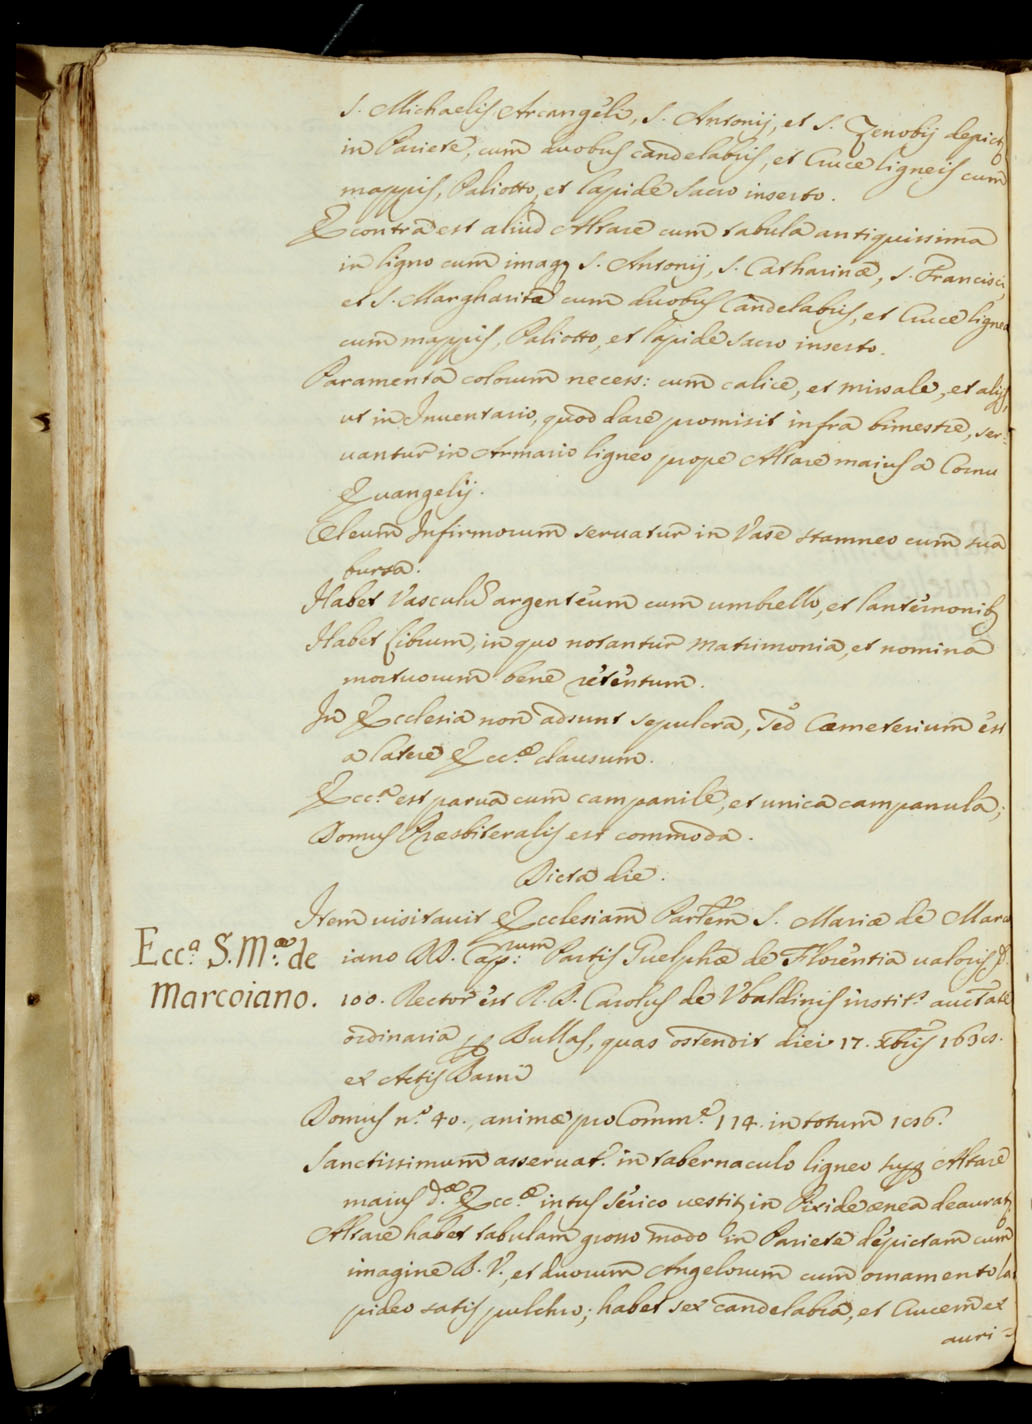 S. Michaelis Arcangeli, S. Antonij, et S. Zenobij depict
in Pariete, cum duobus candelabris, et Cruce ligneis cum
mappis, Paliotto, et lapide sacro inserto.
E contra est aliud Altare cum tabula antiquissima
in ligno cum imag: S. Antonij, S. Catharinæ, S. Francisci,
et S. Margharitæ cum duobus Candelabris, et Cruce lignea
cum mappis, Paliotto, et lapide sacro inserto.
Paramenta colorum necess: cum calice, et missale, et alijs,
ut in Inventario, quod dare promisit infra bimestre, ser=
uantur in Armario ligneo prope Altare maius a Cornu
Euangelij.
Oleum Infirmorum seruatur in Vase stamneo cum sua
bursa.
Habet Vasculũ argenteum cum umbrello, et lanternonibꝫ
Habet Librum, in quo notantur matrimonia, et nomina
mortuorum bene retentum.
In Ecclesia non adsunt sepulcra, sed Cæmeterium est
a latere Eccæ clausum.
Ecca est parua cum campanile, et unica campanula;
Domus Præsbiteralis est commoda.
Dicta die.
Item uisitauit Ecclesiam Partem S. Mariæ de Marco
Ecca. S. Mæ. de
Marcoiano.
iano DD. Cap:num Partis Guelphæ de Florentia ualoris
100. Rector est R. D. Carolus de Vbaldinis instit.s auctate
ordinaria Bullas, quas ostendit diei 17. Xbris
ex Actis
Domus n.o 40., animæ pro Comm.e 114. in totum
Sanctissimum asseruat.r in tabernaculo ligneo Altare
maius d.æ Eccæ intus serico uestit in Pixide ænea deaurat
Altare habet tabulam grosso modo in Pariete depictam cum
imagine B. V. et duorum Angelorum cum ornamento la
pideo satis pulchro; habet sex candelabra, et Crucem ex
auri=